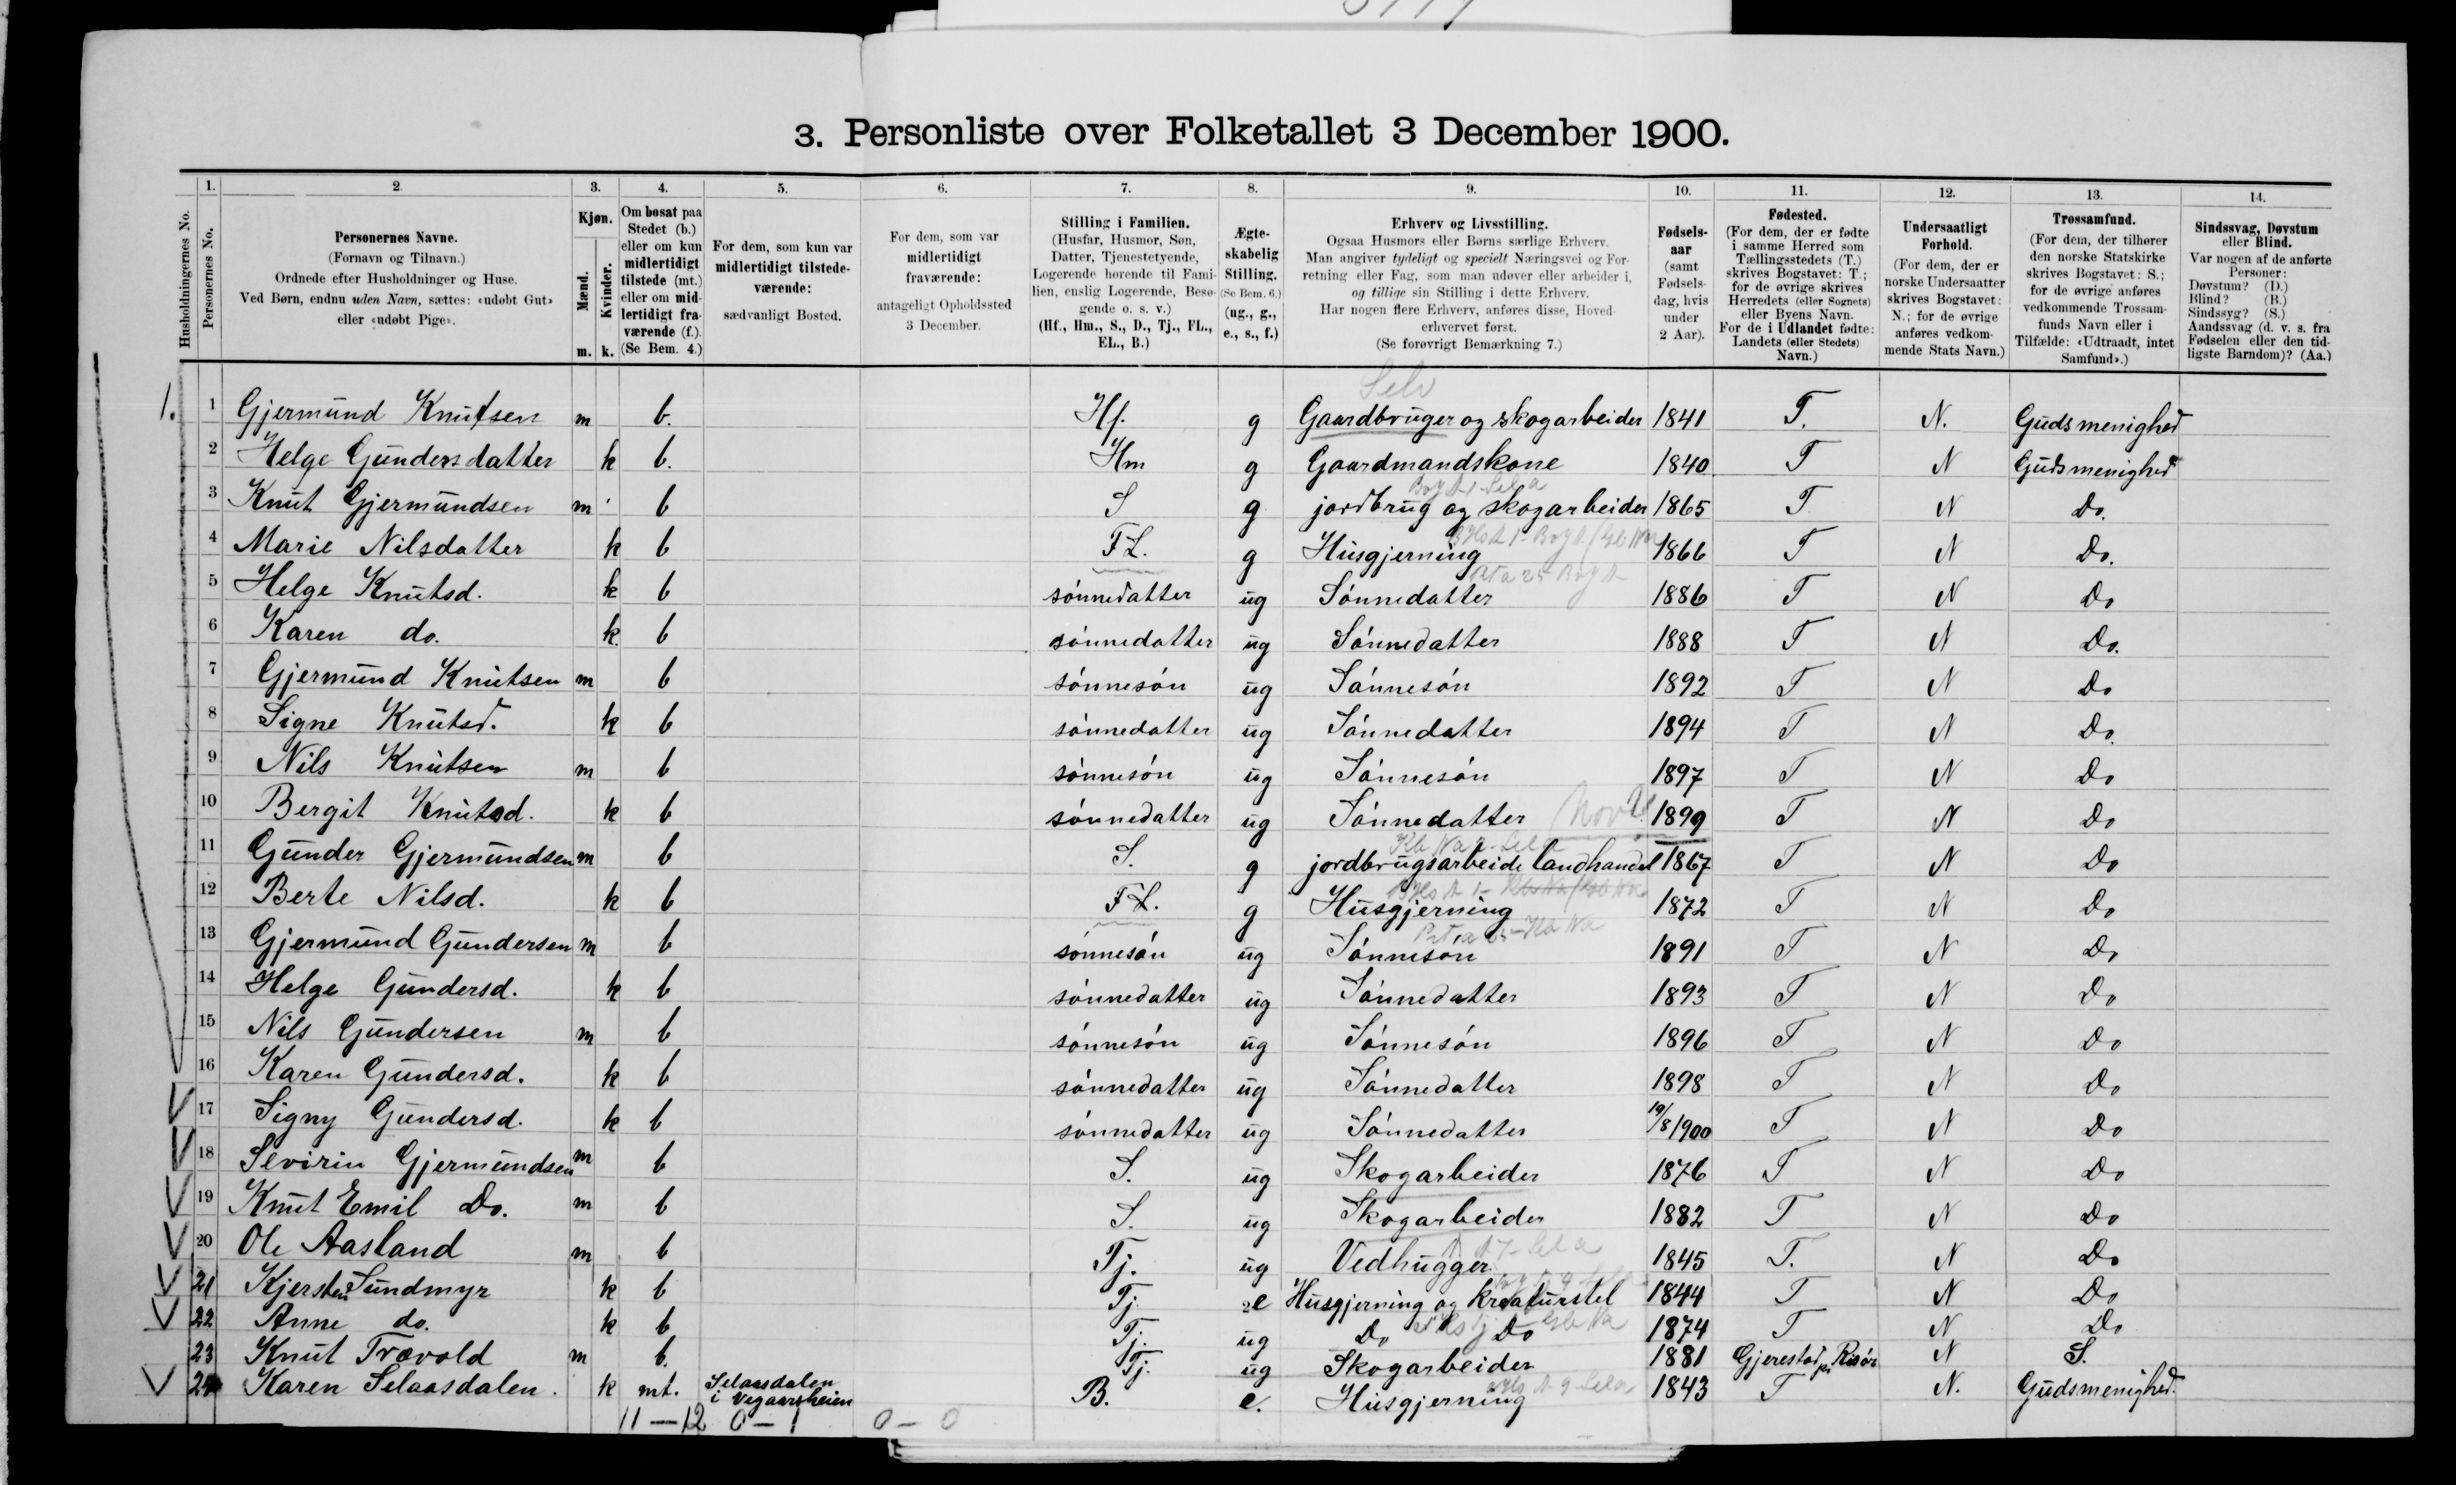 3. Personliste over Folketallet 3 December 1900.
1. 2. 3. 4. 5. 6. 7. 8. 9. 10. 11. 12. 13. 14.
Husholdningernes No.
Personernes No.
Personernes Navne.
(Fornavn og Tilnavn.)
Ordnede efter Husholdninger og Huse.
Ved Børn, endnu uden Navn, sættes: «udøbt Gut»
eller «udøbt Pige».
Kjøn.
Mænd.
Kvinder.
m. k.
Om bosat paa
Stedet (b.)
eller om kun
midlertidigt
tilstede (mt.)
eller om mid-
lertidigt fra-
værende (f.).
(Se Bem. 4.)
For dem, som kun var
midlertidigt tilstede-
værende:
sædvanligt Bosted.
For dem, som var
midlertidigt
fraværende:
antageligt Opholdssted
3 December.
Stilling i Familien.
(Husfar, Husmor, Søn,
Datter, Tjenestetyende,
Logerende hørende til Fami-
lien, enslig Logerende, Besø-
gende o. s. v.)
(Hf., Hm., S., D., Tj., FL.,
EL., B.)
Ægte-
skabelig
Stilling.
(Se Bem. 6.)
(ug., g.,
e., s., f.)
Erhverv og Livsstilling.
Ogsaa Husmors eller Børns særlige Erhverv.
Man angiver tydeligt og specielt Næringsvei og For-
retning eller Fag, som man udøver eller arbeider i,
og tillige sin Stilling i dette Erhverv.
Har nogen flere Erhverv, anføres disse, Hoved-
erhvervet først.
(Se forøvrigt Bemærkning 7.)
Fødsels-
aar
(samt
Fødsels-
dag, hvis
under
2 Aar).
Fødested.
(For dem, der er fødte
i samme Herred som
Tællingsstedets (T.)
skrives Bogstavet: T.;
for de øvrige skrives
Herredets (eller Sognets)
eller Byens Navn.
For de i Udlandet fødte:
Landets (eller Stedets)
Navn.)
Undersaatligt
Forhold.
(For dem, der er
norske Undersaatter
skrives Bogstavet:
N.; for de øvrige
anføres vedkom-
mende Stats Navn.)
Trossamfund.
(For dem, der tilhører
den norske Statskirke
skrives Bogstavet: S.;
for de øvrige anføres
vedkommende Trossam-
funds Navn eller i
Tilfælde: «Udtraadt, intet
Samfund».)
Sindssvag, Døvstum
eller Blind.
Var nogen af de anførte
Personer:
Døvstum? (D.)
Blind? (B.)
Sindssyg? (S.)
Aandssvag (d. v. s. fra
Fødselen eller den tid-
ligste Barndom)? (Aa.)
Selv
1. 1 Gjermund Knutsen m b. Hf. g Gaardbruger og skogarbeider 1841 T. N. Gudsmenighed
2 Helge Gundersdatter k b. Hm g Gaardmandskone 1840 T N Gudsmenighed
3 Knut Gjermundsen m b S g jordbrug og skogarbeider 1865 T N Do.
4 Marie Nilsdatter k b FL. g Husgjerning 1866 T N Do.
5 Helge Knutsd. k b sønnedatter ug Sønnedatter 1886 T N Do
6 Karen do. k. b sønnedatter ug Sønnedatter 1888 T N Do.
7 Gjermund Knutsen m b sønnesøn ug Sønnesøn 1892 T N Do
8 Signe Knutsd. k b sønnedatter ug Sønnedatter 1894 T N Do.
9 Nils Knutsen m b sønnesøn ug Sønnesøn 1897 T N Do
10 Bergit Knutsd. k b sønnedatter ug Sønnedatter 1899 T N Do
11 Gunder Gjermundsen m b S. g jordbrugsarbeide landhandel 1867 T N Do
12 Berte Nilsd. k b FL. g Husgjerning 1872 T N Do
13 Gjermund Gundersen m b sønnesøn ug Sønnesøn 1891 T N Do
14 Helge Gundersd. k b sønnedatter ug Sønnedatter 1893 T N Do
15 Nils Gundersen m b sønnesøn ug Sønnesøn 1896 T N Do
16 Karen Gundersd. k b sønnedatter ug Sønnedatter 1898 T N Do
17 Signy Gundersd. k b sønnedatter ug Sønnedatter 19/8 1900 T N Do
18 Sevirin Gjermundsen m b S. ug Skogarbeider 1876 T N Do
19 Knut Emil Do. m b S. ug Skogarbeider 1882 T N Do
20 Ole Aasland m b Tj. ug Vedhugger 1845 T. N Do
21 Kjersten Sundmyr k b Tj. e Husgjerning og kreaturstel 1844 T N Do
22 Anne do. k b Tj. ug Do Do 1874 T N Do
23 Knut Trævold m b. Tj. ug Skogarbeider 1881 Gjerestad pr Risør N S.
24 Karen Selaasdalen. k mt. Selaasdalen i Vegaarsheien B. e. Husgjerning 1843 T N. Gudsmenighed.
11 — 12 0 — 1 0 — 0